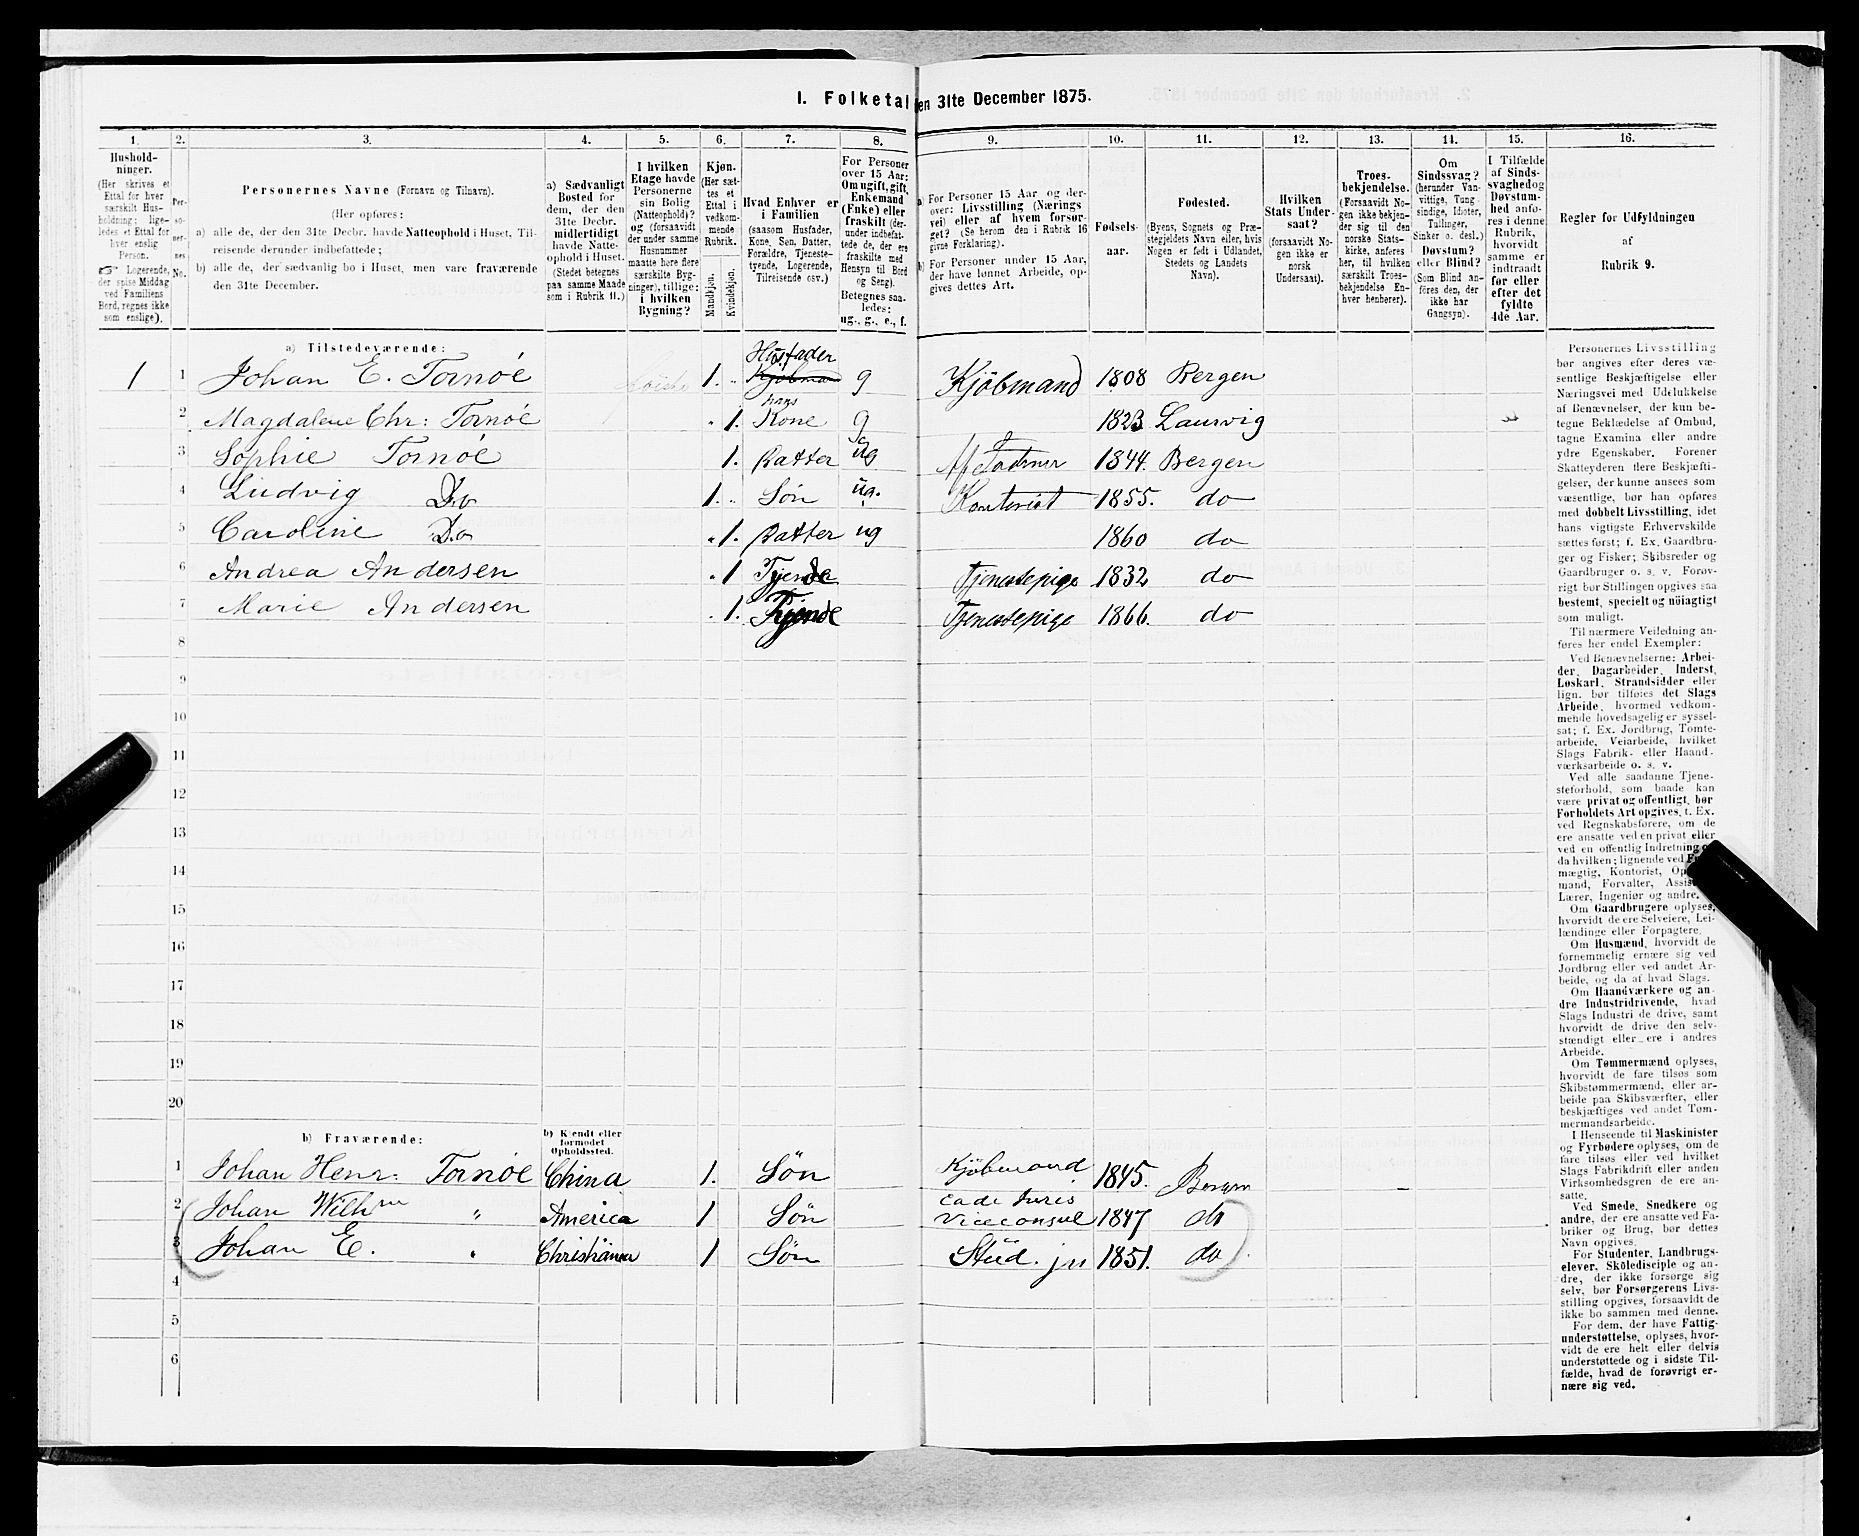 1. Folketal den 31te December 1875.
1.
Hushold-
ninger.
(Her skrives et
Ettal for hver
særskilt Hus-
holdning; lige-
ledes et Ettal for
hver enslig
Person.
☞ Logerende,
der spise Middag
ved Familiens
Bord, regnes ikke
som enslige).
2.
Per-
so-
ner-
nes
No.
3.
Personernes Navne (Fornavn og Tilnavn).
(Her opføres:
a) alle de, der den 31te Decbr. havde Natteophold i Huset, Til-
reisende derunder indbefattede;
b) alle de, der sædvanlig bo i Huset, men vare fraværende
den 31te December.
4.
a) Sædvanligt
Bosted for
dem, der den
31te Decbr.
midlertidigt
havde Natte-
ophold i Huset.
(Stedet betegnes
paa samme Maade
som i Rubrik 11.)
5.
I hvilken
Etage havde
Personerne
sin Bolig
(Natteophold)?
og (forsaavidt
der under samme
Husnummer
maatte høre flere
særskilte Byg-
ninger), tillige:
i hvilken
Bygning?
6.
Kjøn.
(Her sæt-
tes et
Ettal i
vedkom-
mende
Rubrik.
Mandkjøn.
Kvindekjøn.
7.
Hvad Enhver er
i Familien
(saasom Husfader,
Kone, Søn, Datter,
Forældre, Tjeneste-
tyende, Logerende,
Tilreisende osv.)
8.
For Personer
over 15 Aar:
Om ugift, gift,
Enkemand
(Enke) eller
fraskilt (der-
under indbefat-
tede de, der ere
fraskilte med
Hensyn til Bord
og Seng).
Betegnes saa-
ledes:
ug., g., e., f.
9.
a) For Personer 15 Aar og der-
over: Livsstilling (Nærings
vei) eller af hvem forsør-
get? (Se herom den i Rubrik 16
givne Forklaring).
b) For Personer under 15 Aar,
der have lønnet Arbeide, op-
gives dettes Art.
10.
Fødsels-
aar.
11.
Fødested.
(Byens, Sognets og Præ-
stegjeldets Navn eller, hvis
Nogen er født i Udlandet,
Stedets og Landets
Navn).
12.
Hvilken
Stats Under-
saat?
(forsaavidt No-
gen ikke er
norsk
Undersaat).
13.
Troes-
bekjendelse.
(Forsaavidt No-
gen ikke bekjen-
der sig til den
norske Stats-
kirke, anføres
her, til hvilken
særskilt Troes-
bekjendelse En-
hver henhører).
14.
Om
Sindssvag?
(herunder Van-
vittige, Tung-
sindige, Idioter,
Tullinger,
Sinker o. desl.)
Døvstum?
eller Blind?
(Som Blind an-
føres den, der
ikke har
Gangsyn).
15.
I Tilfælde
af Sinds-
svaghed og
Døvstum-
hed anfø-
res i denne
Rubrik,
hvorvidt
samme er
indtraadt
før eller
efter det
fyldte
4de Aar.
16.
Regler for Udfyldningen
af
Rubrik 9.
a) Tilstedeværende:
1 1 Johan E. Tornöe 1. Husfader Kjöbmand g Kjöbmand 1808 Bergen
2 Magdalene Chr: Tornöe 1. hans Kone g 1823 Laurvig
3 Sophie Tornöe 1. Datter ug af Faderen 1844. Bergen
4 Ludvig Do 1. Sön ug. Kontorist 1855. do
5 Caroline Do 1. Datter ug 1860 do
6 Andrea Andersen 1 Tjende Tjenestepige 1832 do
7 Marie Andersen 1. Tjende Tjenestepige 1866. do
8
9
10
11
12
13
14
15
16
17
18
19
20
b) Fraværende:
b) Kjendt eller
formodet
Opholdssted.
1 Johan Henr: Tornöe China 1. Sön Kjöbmand 1845. Bergen
2 Johan Wilhm " America 1 Sön Cade Juris Viceconsul 1847 do
3 Johan E. " Christiania 1 Sön Stüd. jur 1851. do
4
5
6
Personernes Livsstilling
bør angives efter deres væ-
sentlige Beskjæftigelse eller
Næringsvei med Udelukkelse
af Benævnelser, der kun be-
tegne Beklædelse af Ombud,
tagne Examina eller andre
ydre Egenskaber. Forener
Skatteyderen flere Beskjæfti-
gelser, der kunne ansees som
væsentlige, bør han opføres
med dobbelt Livsstilling, idet
hans vigtigste Erhvervskilde
sættes først; f. Ex. Gaardbru-
ger og Fisker; Skibsreder og
Gaardbruger o. s. v. Forøv-
rigt bør Stillingen opgives saa
bestemt, specielt og nøiagtigt
som muligt.
Til nærmere Veiledning an-
føres her endel Exempler:
Ved Benævnelserne: Arbei-
der, Dagarbeider, Inderst,
Løskarl, Strandsidder eller
lign. bør tilføies det Slags
Arbeide, hvormed vedkom-
mende hovedsagelig er syssel-
sat; f. Ex. Jordbrug, Tomte-
arbeide, Veiarbeide, hvilket
Slags Fabrik- eller Haand-
værksarbeide o. s. v.
Ved alle saadanne Tjene-
steforhold, som baade kan
være privat og offentligt, bør
Forholdets Art opgives, t. Ex.
ved Regnskabsførere, om de
ere ansatte ved en privat eller
ved en offentlig Indretning
da hvilken; lignende ved
mægtig, Kontorist,
mand, Forvalter,
Lærer, Ingeniør og andre.
Om Gaardbrugere oplyses,
hvorvidt de ere Selveiere, Lei-
lændinge eller Forpagtere.
Om Husmænd, hvorvidt de
fornemmelig ernære sig ved
Jordbrug eller ved andet Ar-
beide, og da af hvad Slags.
Om Haandværkere og an-
dre Industridrivende, hvad
Slags Industri de drive, samt
hvorvidt de drive den selv-
stændigt eller ere i andres
Arbeide.
Om Tømmermænd oplyses,
hvorvidt de fare tilsøs som
Skibstømmermænd, eller ar-
beide paa Skibsværfter, eller
beskjæftiges ved andet Tøm-
mermandsarbeide.
I Henseende til Maskinister
og Fyrbødere oplyses, om de
fare tilsøs eller ved hvilket
Slags Fabrikdrift eller anden
Virksomhedsgren de ere an-
satte.
Ved Smede, Snedkere og
andre, der ere ansatte ved Fa-
briker og Brug, bør dettes
Navn opgives.
For Studenter, Landbrugs-
elever, Skoledisciple og an-
dre, der ikke forsørge sig
selv, bør Forsørgerens Livs-
stilling opgives, forsaavidt de
ikke bo sammen med denne.
For dem, der have Fattig-
understøttelse, oplyses, hvor-
vidt de ere helt eller delvis
understøttede og i sidste Til-
fælde, hvad de forøvrigt er-
nære sig ved.